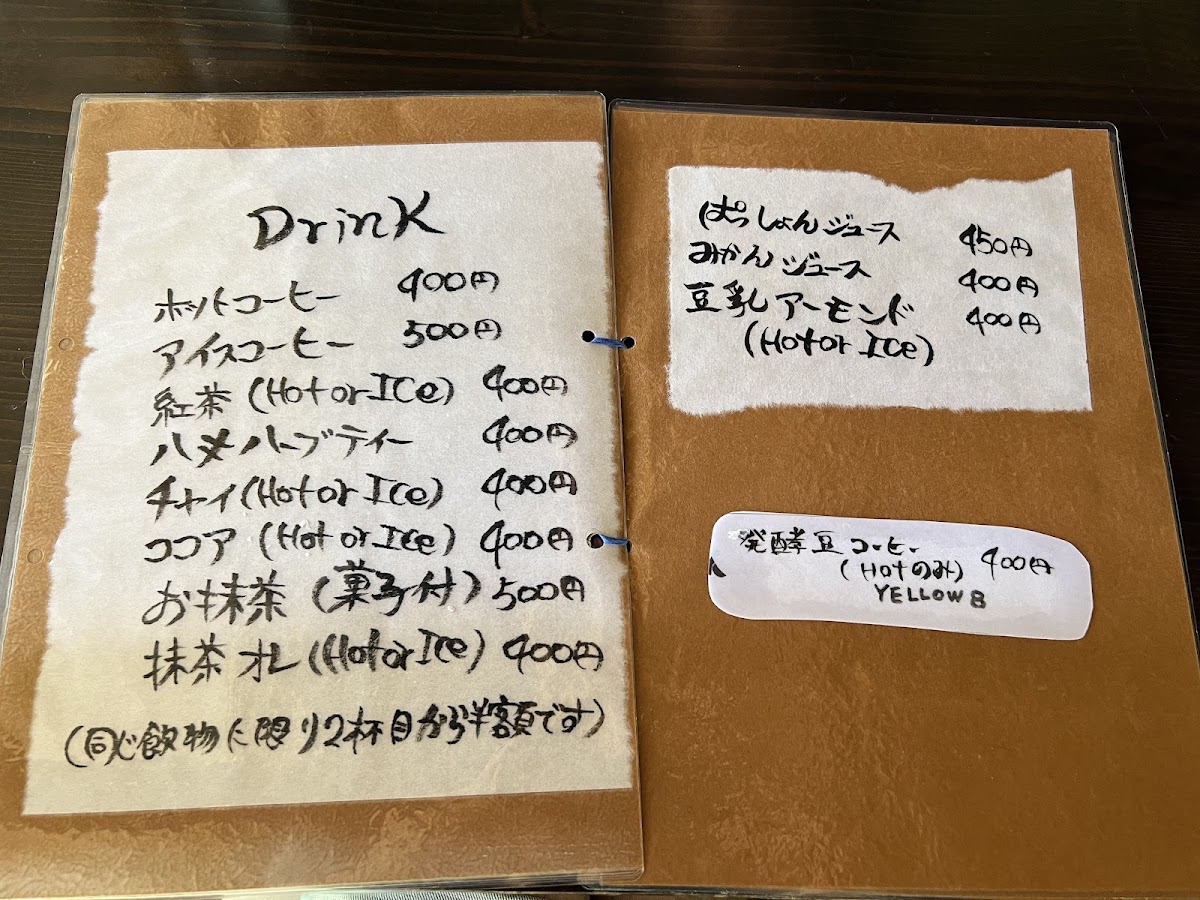 Drink
ホットコーヒー 400円
アイスコーヒー 500円
紅茶 (Hot or ICe) 400円
ハメハーブティー 400円
チャイ (Hot or ICe) 400円
ココア (Hot or ICe) 400円
お抹茶 (菓子付) 500円
抹茶オレ (Hot or ICe) 400円
(同じ飲物に限り2杯目から半額です)
ぱっしょんジュース 450円
みかんジュース 400円
豆乳アーモンド 400円
(Hot or ICe)
発酵豆コーヒー 400円
(Hotのみ)
YELLOW 8